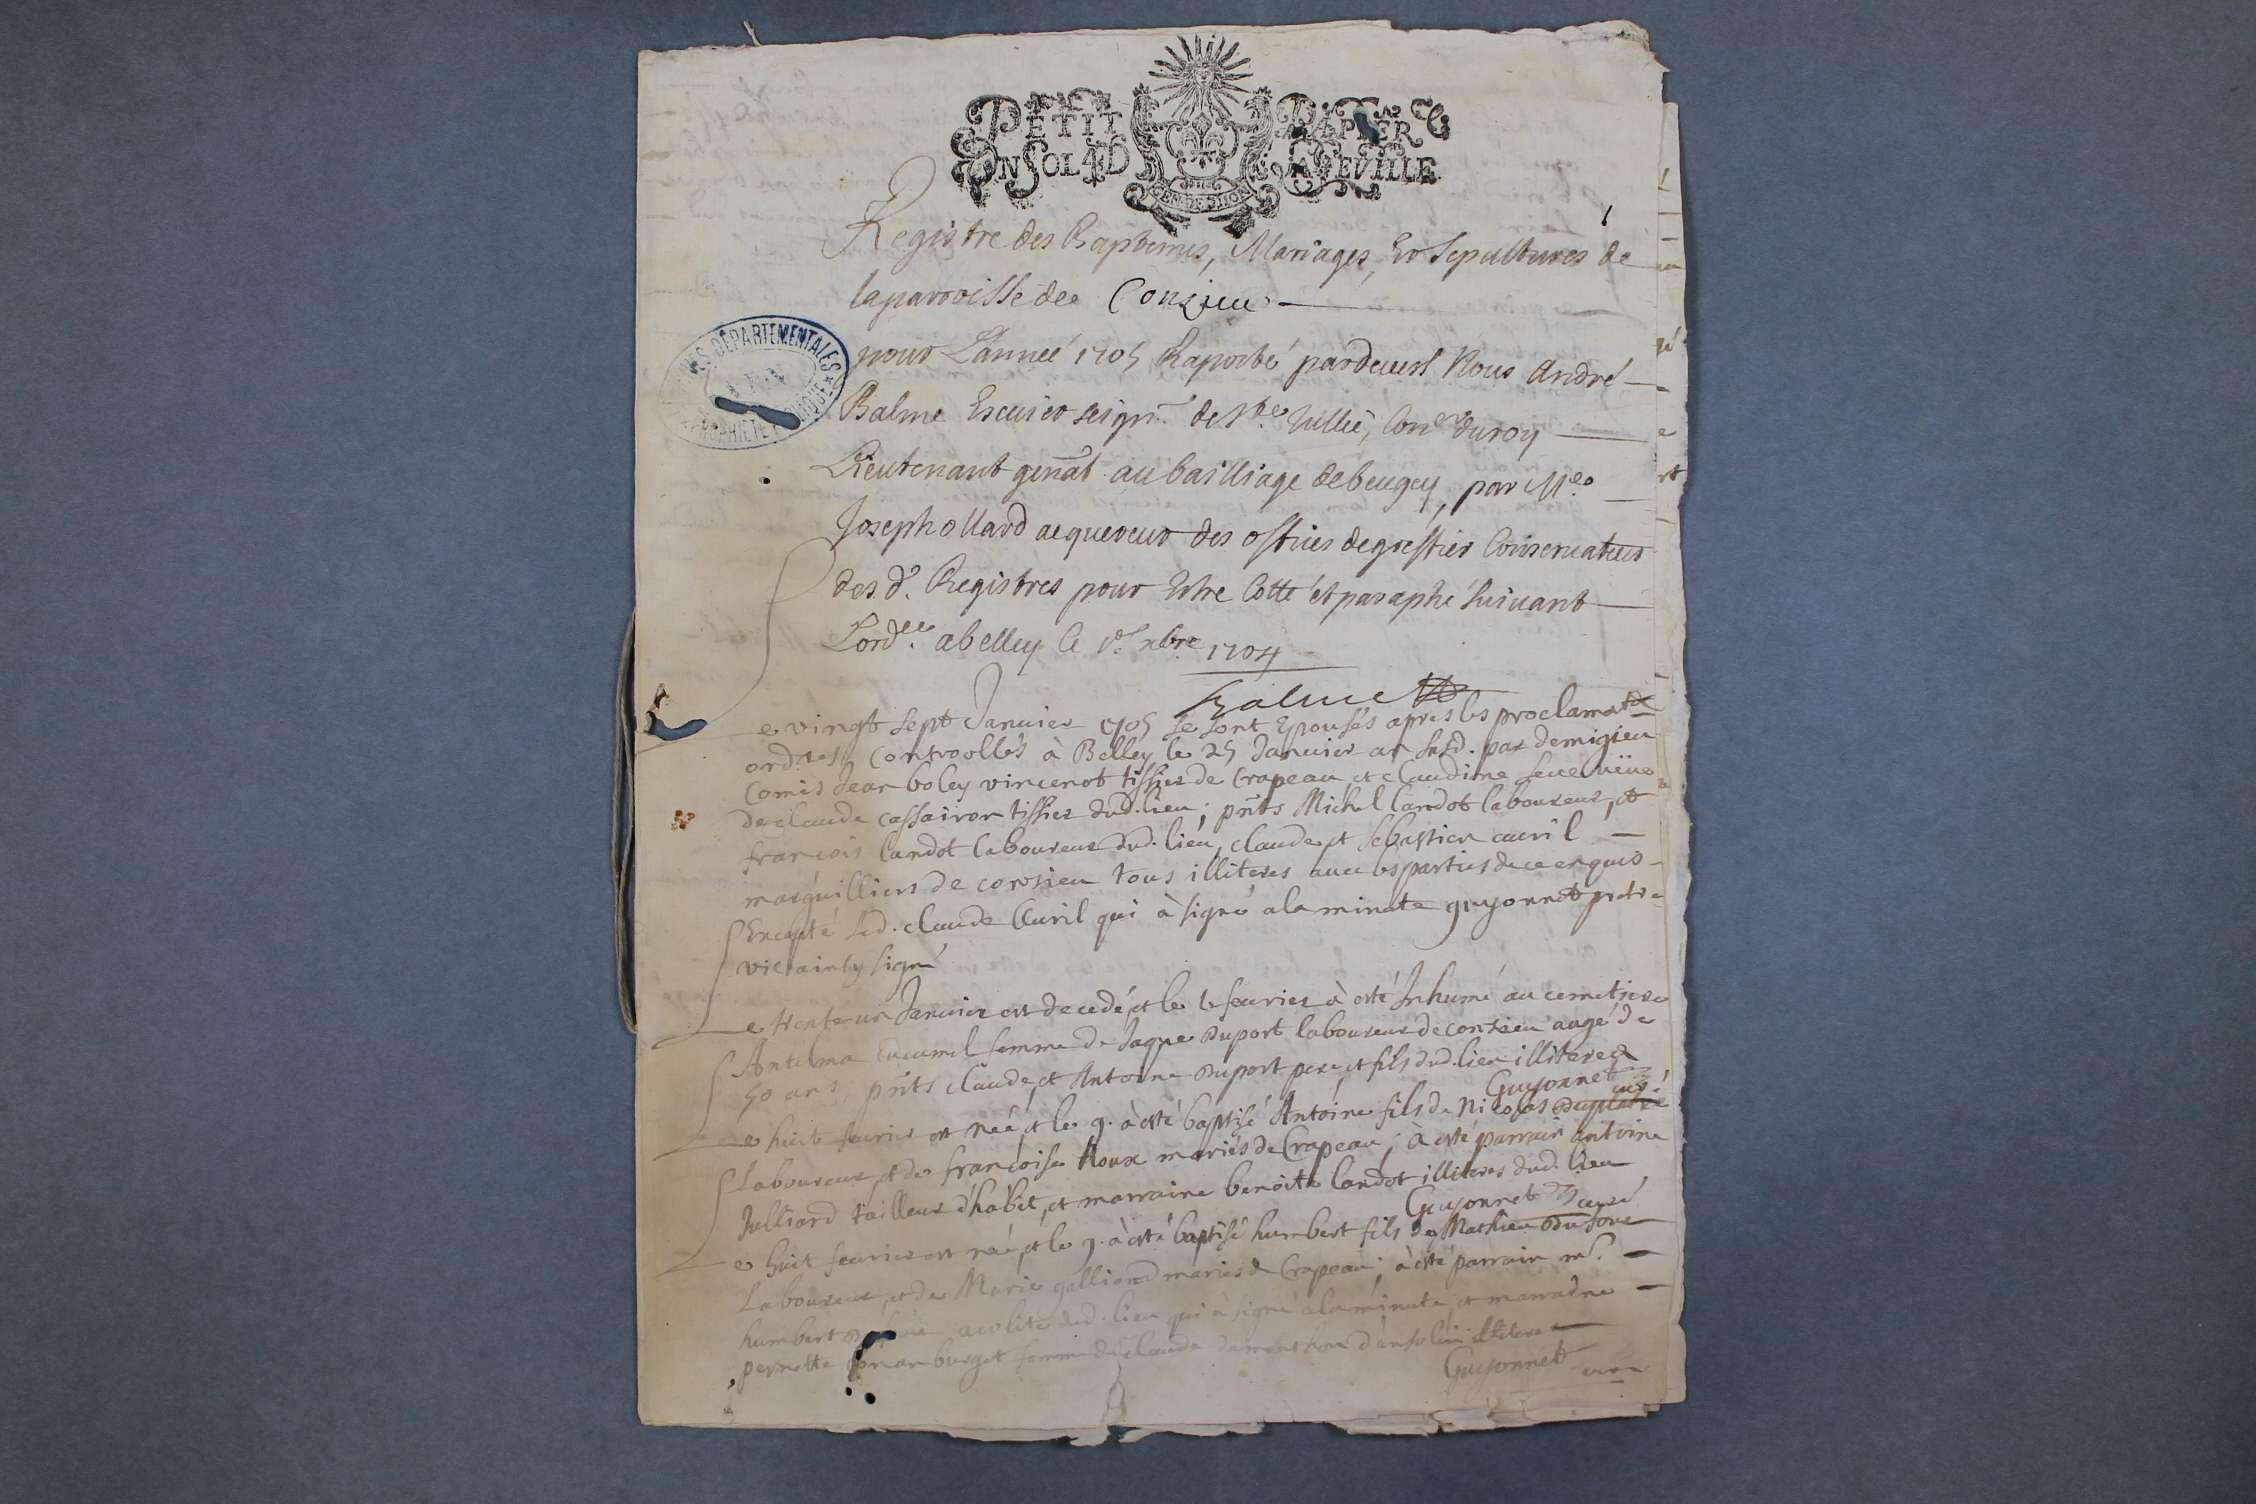 PETIT PAPIER
EN SOL 4 D LA FEVILLE
GEN DE DIION
1
Registre des Baptemes, Mariages, Et Sepultures de
la parroisse de Conzieu
pour L'année 1705 Raporté pardeuest Nous André
Balme Escuier seignr de Ste Jullie, Coner du roy
Lieutenant genal au bailliage de beugey, par Me
Joseph ollard aequereur des offices de greffier Conseruateur
des d. Registres pour Estre Cotté et paraphé suiuant
Lord.ce a belley le 1er xbre 1704
Balme
ARCHIVES DÉPARTEMENTALES
PROPRIÉTÉ PUBLIQUE
Le vingt sept Januier 1705 se sont Epousés apres les proclamat.
ord.res controollés à Belley le 25 Januier an susd. par demigieu
comis Jean boley vincenot tissier de Crapeau et claudine veue
de claude cassairon tissier dud. lieu; pnts Michel landot laboureur, et
françois landot laboureur dud. lieu, claude et sebastien auril
marguilliers de conzieu tous illiteres auec les parties de ce enquis
Excepté led. claude Auril qui à signé a la minute guyonnet pretre
vic ainsy signé
Le trente un Januier est decedé, et le 1 feurier à esté Inhumé au cemetiere
Antelma femme de Jaque Duport laboureur de conzieu augé de
50 ans, pnts claude, et Antoine Duport pere et fils dud. lieu illiteres
Guyonnet curé
Le huit feurier est née, et le 9. à esté baptizé Antoine fils de Nicolas
Laboureur, et de françoise Roux mariés de Crapeau; à esté parrain antoine
Julliard tailleur d'habit, et marraine benoite landot illiteres dud. lieu
Guyonnet curé
Le huit feurier est née, et le 9. à esté baptisé humbert fils de Mathieu Dufour
Laboureur, et de Marie galliand mariés de Crapeau; à esté parrain mr.
humbert acolite dud. lieu qui à signé a la minute, et marradne
pernette burget femme de claude illitere
Guyonnet curé